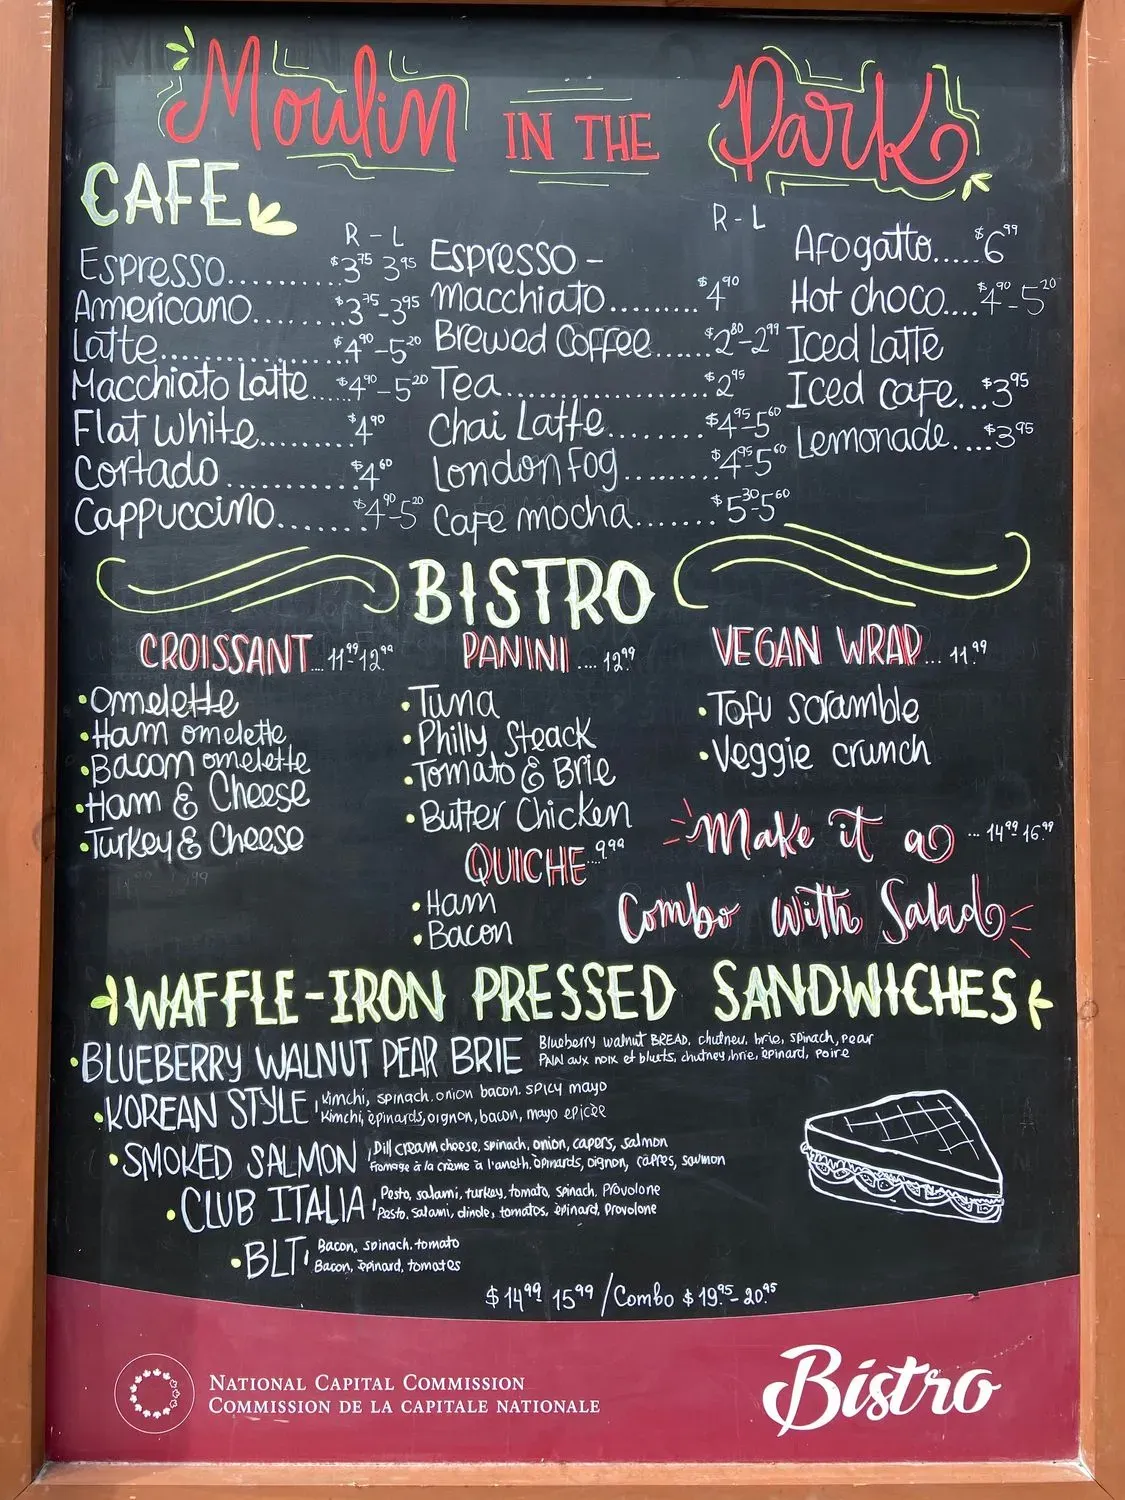 Moulin IN THE Park
CAFE
R - L
Espresso.......... $3.75 3.95
Americano........ $3.75-3.95
Latte.................. $4.90-5.20
Macchiato Latte..... $4.90-5.20
Flat White......... $4.90
Cortado ............ $4.60
Cappuccino....... $4.90-5.20
R - L
Espresso -
Macchiato......... $4.90
Brewed Coffee...... $2.80-2.99
Tea.................... $2.95
Chai Latte........ $4.95-5.60
London Fog......... $4.95-5.60
Cafe mocha....... $5.30-5.60
Afogatto..... $6.99
Hot choco.... $4.90-5.20
Iced Latte
Iced cafe... $3.95
Lemonade.... $3.95
BISTRO
CROISSANT... 11.99 12.99
• Omelette
• Ham omelette
• Bacom omelette
• Ham & Cheese
• Turkey & Cheese
PANINI .... 12.99
• Tuna
• Philly Steack
• Tomato & Brie
• Butter Chicken
QUICHE... 9.99
• Ham
• Bacon
VEGAN WRAP... 11.99
• Tofu scramble
• Veggie crunch
Make it a ... 14.99 16.99
Combo with Salad
WAFFLE-IRON PRESSED SANDWICHES
• BLUEBERRY WALNUT PEAR BRIE
Blueberry walnut BREAD, chutney, brie, spinach, pear
PAIN aux noix et bluets, chutney, brie, épinard, poire
• KOREAN STYLE,
Kimchi, spinach, onion bacon, spicy mayo
Kimchi, épinards, oignon, bacon, mayo epicée
• SMOKED SALMON,
Dill cream cheese, spinach, onion, capers, salmon
Fromage à la crème à l'aneth, épinards, oignon, câpres, saumon
• CLUB ITALIA,
Pesto, salami, turkey, tomato, spinach, Provolone
Pesto, salami, dinde, tomates, épinard, Provolone
• BLT,
Bacon, spinach, tomato
Bacon, épinard, tomates
$14.99 15.99 / Combo $19.95-20.95
NATIONAL CAPITAL COMMISSION
COMMISSION DE LA CAPITALE NATIONALE
Bistro